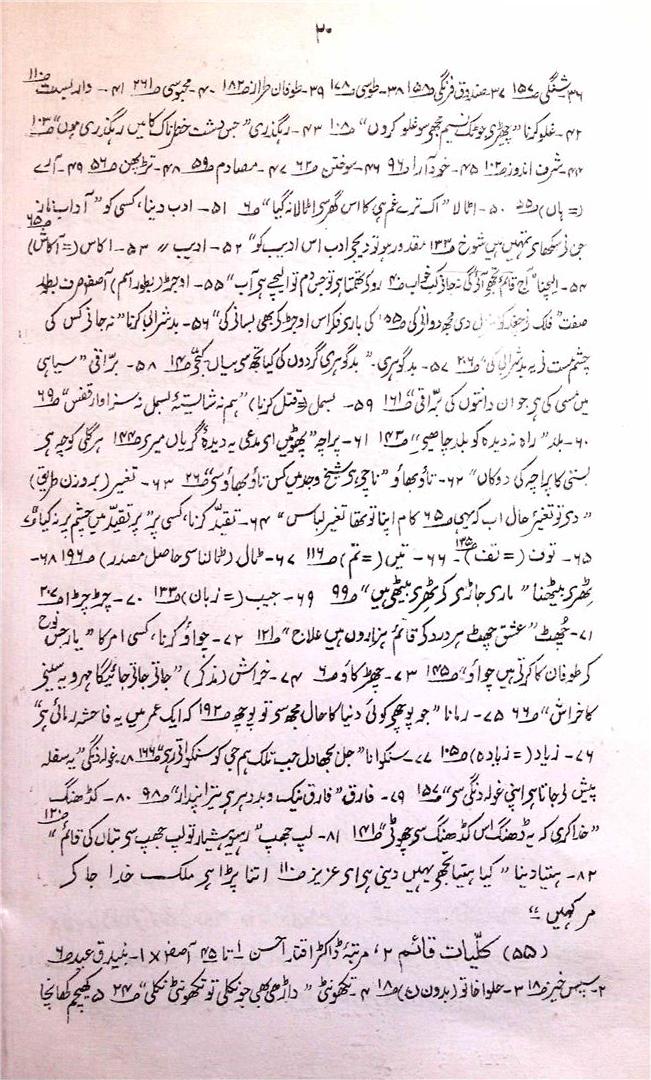 ۲۰
۳۶۔ شنگی ص۱۵۷ ۳۷۔ صندوق فرنگی ص۱۵۸ ۳۸۔ طوسی ص۱۷۸ ۳۹۔ طوفان طراز ص۱۸۲ ۴۰۔ مجبوسی ص۲۶۱ ۴۱۔ وار بست ص۱۱۰
۴۲۔ غلو کرنا ”چھڑی جوٹک نسیم مجھی سو غلو کروں“ ص۱۰۵ ۴۳۔ رہگذری ”جس دشت خطرناک کا میں رہگذری ہوں“ ص۱۰۳
۴۴۔ شرف اندوز ص۱۰۲ ۴۵۔ خود آرا ص۹۶ ۴۶۔ سوختن ص۶۲ ۴۷۔ مصادم ص۵۹ ۴۸۔ تڑپھن ص۵۶ ۴۹۔ آرے
(= ہاں) ۵۰۔ اٹالا ”اک ترے غم ہی کا اس گھر سی اٹالا نہ گیا“ ص۶ ۵۱۔ ادب دینا، کسی کو ”آداب ناز
جن نے سکھائی تمہیں میں شوخ ص۱۳۳ مقدور ہو تو دیجی ادب اس ادیب کو“ ۵۲۔ ادیب // ۵۳۔ اکاس (= آکاش) ص۶۵
۵۴۔ ایچنا ”آج قائم کے مجھی آئی گی نہ جانے کب خواب ص۴۰ رو کے کھنچتا ہی تو جس دم تو ایچے ہی آب“ ۵۵۔ اوجڑ (بطور اسم) آصفہ صرف بطور
صفت ”فلک نے جغد کو دی مجھ دوانی کی ص۱۵۵ کی باری فکر اس اوجڑ کے بھی بسانی کی“ ۵۶۔ بد شرابی کرنا ”نہ جانے کس کی
چشم مست نے یہ بد شرابی کی“ ص۲۶ ۵۷۔ بد گوہری۔ ”بد گوہری گردوں کی کیا تجھ سو بیاں کیجی“ ص۱۴ ۵۸۔ برّاقی ”سیاہی
میں مسی کی ہی جو ان دانتوں کی برّاقی“ ص۱۶۱ ۵۹۔ بسمل (= قتل کرنا) ”ہم نہ شایستۂ بسمل نہ سزاوار قفس“ ص۶۹
۶۰۔ بلد ”راہ نہ دیدہ کو بلد چاہیی“ ص۱۴۳ ۶۱۔ پراچہ ”پھوٹیں ای مدعی یہ دیدۂ گریاں میری ص۱۴۴ ہر گلی کوچہ ہی
بستی کا پراچہ کی دوکاں“ ۶۲۔ تاؤ بھاؤ ”ناچی ہی شیخ وجد میں کس تاؤ بھاؤ سی“ ص۲۶ ۶۳۔ تغیر (بر وزن طریق)
”دی تو تغیر حال اب کہ یہی ص۶۵ کام اپنا تو تھا تغیر لباس“ ۶۴۔ تقیّد کرنا، کسی پر ”پر تقیّد میں چشم پر نہ کیا“ ص۷
۶۵۔ توف (= تف) ص۱۳۵۔ ۶۶۔ تیں (= تم) ص۱۱۶ ۶۷۔ ٹال (ٹالنا سی حاصل مصدر) ص۱۹۶ ۶۸۔
ٹھری بیٹھنا ”ماری جاڑی کے ٹھری بیٹھی ہیں“ ص۹۹ ۶۹۔ جیب (= زبان) ص۱۳۳ ۷۰۔ چڑ چڑا ص۲۰۷
۷۱۔ چُھٹ ”عشق چھٹ ہر درد کے قائم ہزاروں ہیں علاج“ ص۱۲۱ ۷۲۔ چواؤ کرنا، کسی امر کا ”یار جس نوح
کے طوفان کا کرتی ہیں چواؤ“ ص۱۴۵ ۷۳۔ چھڑکاؤ ص۶ ۷۴۔ خراش (مذکر) ”جاتی جاتی جائیگا ہرو یہ سینی
کا خراش“ ص۶۶ ۷۵۔ رمانا ”جو پوچھی کوئی دنیا کا حال مجھ سی تو پوچھ ص۱۹۲ کہ ایک عمر میں یہ فاحشہ رمائی ہی“
۷۶۔ زیاد (= زیادہ) ص۱۰۵ ۷۷۔ سنکوانا ”جل بجھا دل جب تلک ہم جی کو سنکواتی رہی“ ص۱۶۶ ۷۸۔ غولہ دنگی ”یہ سفلہ
پیش لی جاتا ہی اپنی غولہ دنگی سی“ ص۱۵۷ ۷۹۔ فارق ”فارق نیک و بد دہر ہی ہتر اپندار“ ص۹۸ ۸۰۔ کڈھنگ
”خدا کری کہ یہ ڈھنگ اس کڈھنگ سی چھوٹی“ ص۱۴۱ ۸۱۔ لپ جھپ ”رہیو ہشیار تو لپ جھپ سی بتاں کی قائم“ ص۱۲۰
۸۲۔ ہتیا دینا ”کیا ہتیا مجھی یہیں دینی ہی ای عزیز ص۱۱۰ اتنا پڑا ہی ملک خدا جا کے
مر کہیں“
(۵۵) کلیات قائم ۲، مرتبۂ ڈاکٹر اقتدا حسن ۱ تا ۴۵ آصفہ × ۱۔ بنیدق عید ص۶
۲۔ سپس خیز ص۱۸ ۳۔ حلوا خاتو (بدون ن) ص۱۸ ۴۔ تکھونٹی ”داڑھی بھی جو نکلی تو تکھونٹی نکلی“ ص۲۴ ۵۔ کھیچم کھانچا